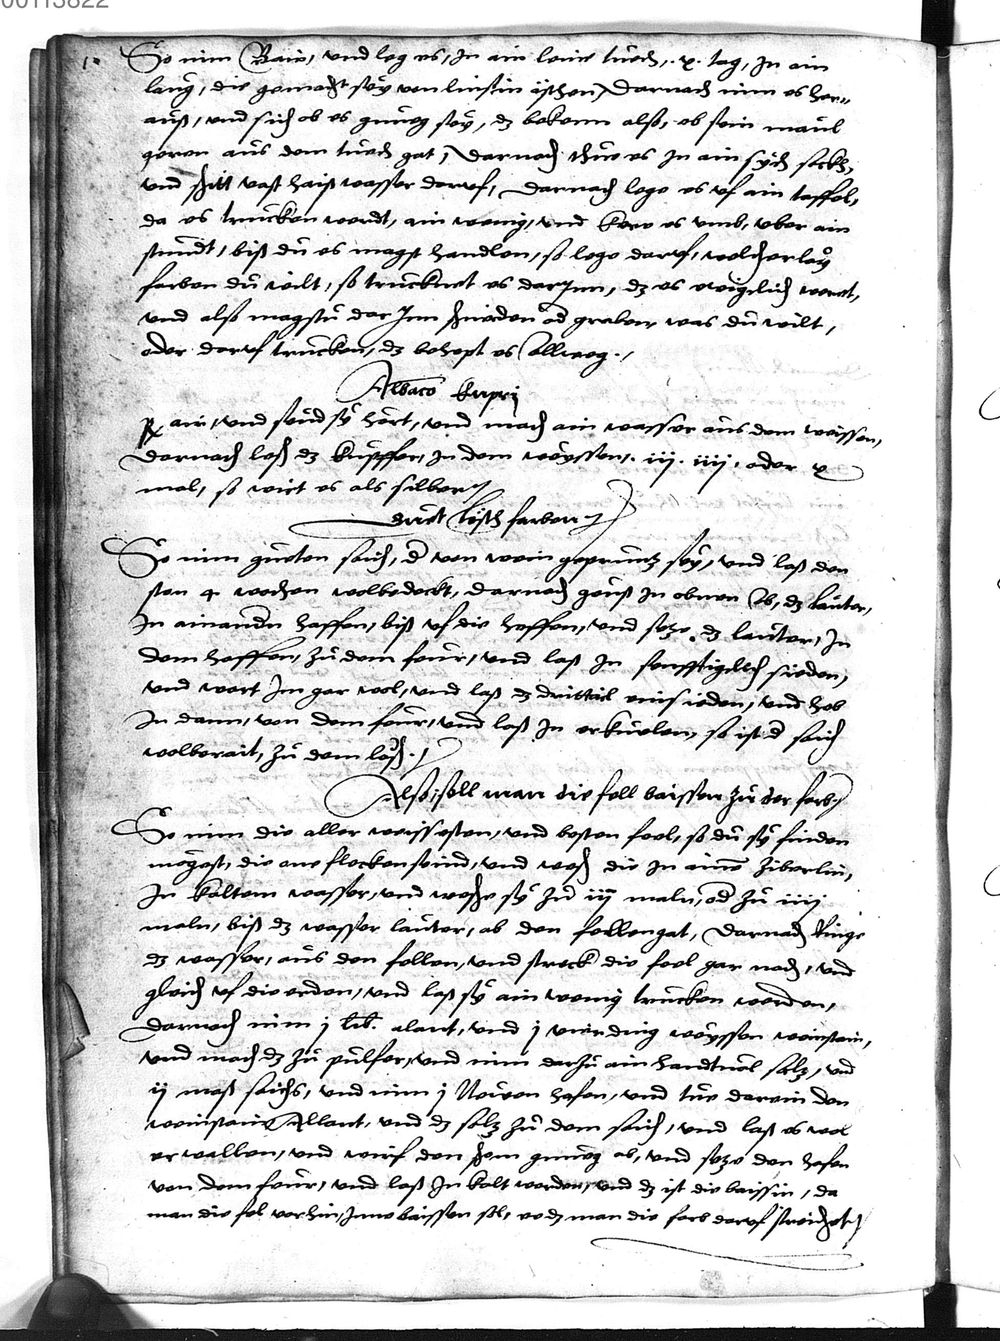 00113822
So nim Bain, vnd leg es, in ain leine tuch, . x. tag, In ain
laug, die gemacht sey von linstin äschen, Darnach nim es her=
auß, vnd sich ob es gnueg sey, dz bekenn also, ob sein maul
geren aus dem tuch gat, Darnach thue es In ain sych seckh,
vnd schitt vast haiß wasser daruf, darnach lege es vf ain taffel,
da es trucken werdt, ain wenig, vnd kere es vmb, vber ain
stundt, biß du es magst handlen, so lege daruf, welcherlay
farben du wilt, so trucknet es darJnn, dz es ewigclich weret,
vnd also magstu dar Jnn schneiden od graben, was du wilt,
oder daruf trucken, dz behept es Allweg.
Albaco kupri
Rx air, vnd seud sy hert, vnd mach ain wasser aus dem weissen,
Darnach lesch dz kupffer, in dem weyssen, . iij. iiij. oder x
mal, so wirt es als silber
löesch farben
So nim gueten saich, d von wein gepruntz sey, vnd laß den
sten 4 wochen wolbedeckt, darnach geuß In obnen Ab, dz lauter,
In ainandn haffen, biß vf die heffen, vnd setze dz lauter, In
dem haffen, zu dem feur, vnd laß In senfftigclich sieden,
vnd wart Im gar wol, vnd laß dz drittail einsieden, vnd heb
In dann, von dem feur, vnd laß In erkuelen, so ist d saich
wolberait, zu dem lesch.
Also soll man die fell baissen zu der farb
So nim die aller weissesten, vnd besten feel, so du sy finden
mögest, die one flecken seind, vnd wesch die In ainē ziberlin,
In kaltem wasser, vnd wesche sy zu iij maln, od zu iiij
maln, biß dz wasser lauter, ab den fellen gat, Darnach ringe
dz wasser, aus den fellen, vnd streck die feel gar nach, vnd
gleich vf die erden, vnd laß sy ain wenig trucken werden,
Darnach nim j lib. alaut, vnd j vierding weyssen weinstain,
vnd mach dz zu pulfer, vnd nim darzu ain handtuol saltz, vnd
ij maß saichs, vnd nim j Newen hafen, vnd tue darein den
weinstain, Allaut, vnd dz saltz zu dem saich, vnd laß es wol
erwallen, vnd wirf den schem gnueg ab, vnd setze den hafen
von dem feur, vnd laß In kalt werden, vnd dz ist die baissin, da
man die fel vorhin, Inne baissen sol, ee dz man die farb daruf streichet